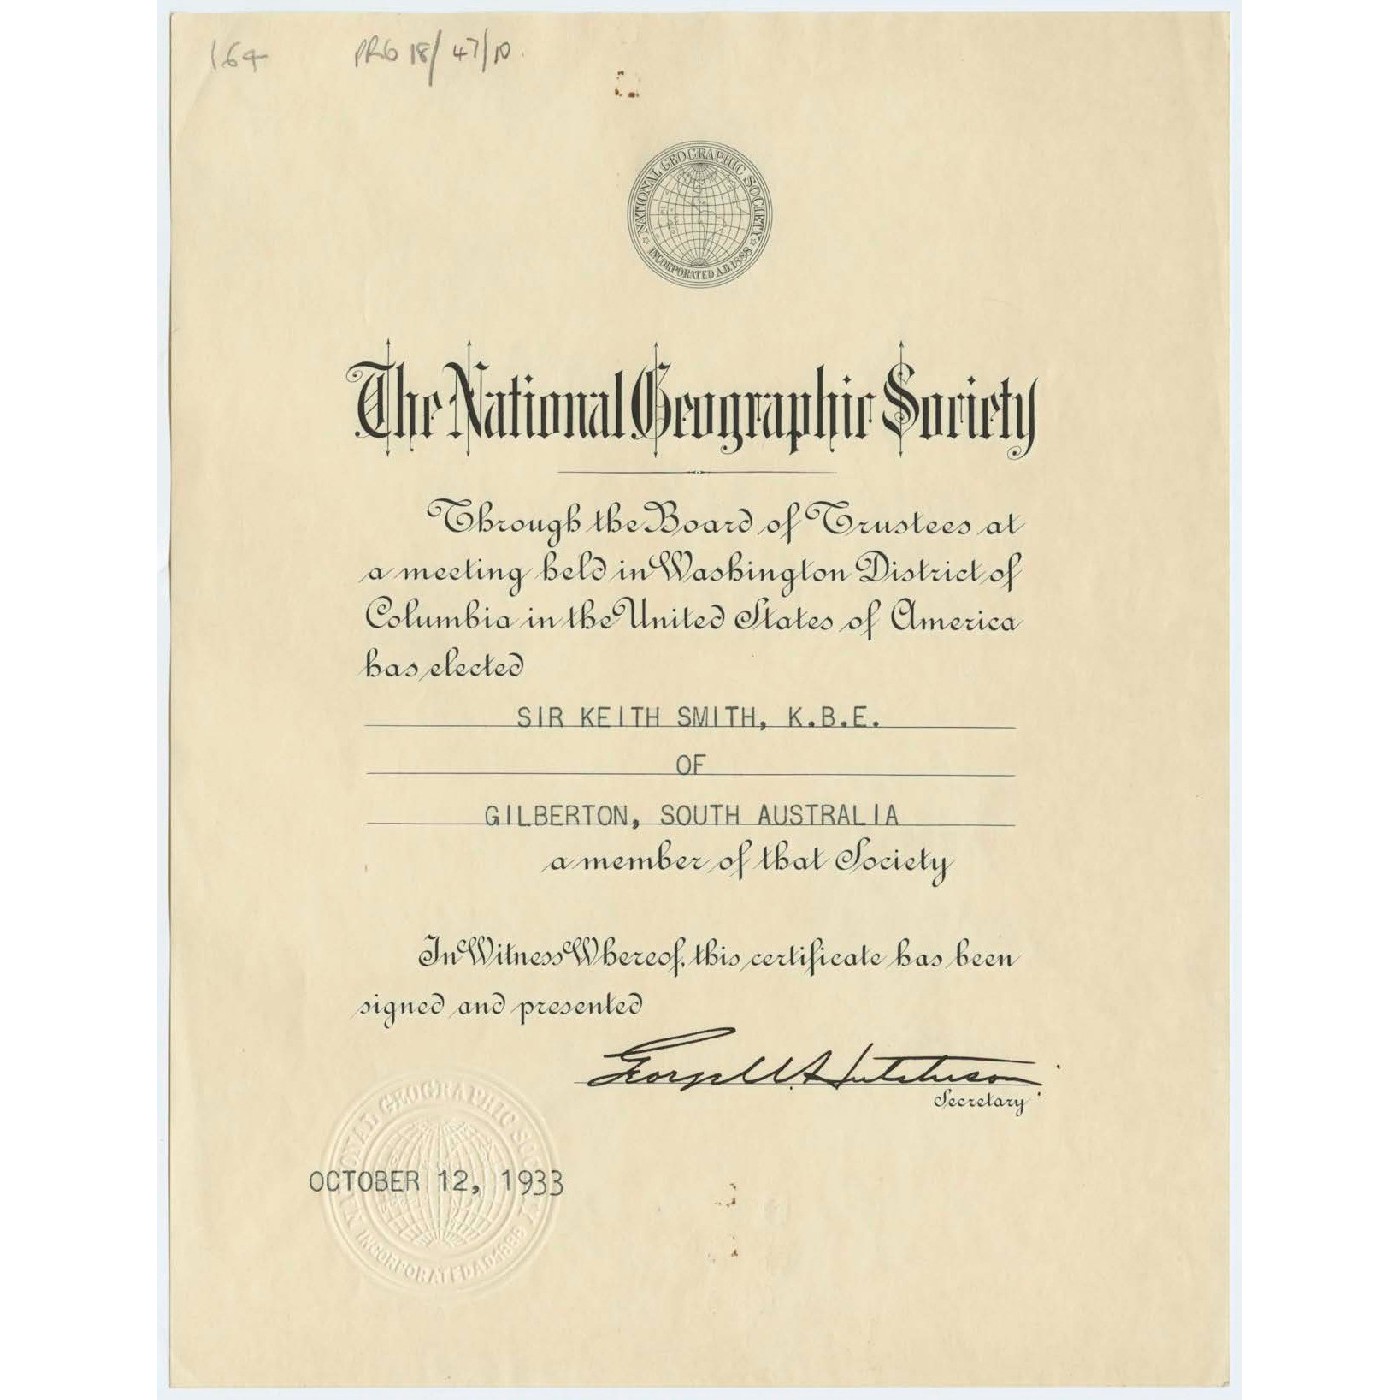 164 PRG 18/47/10.
NATIONAL GEOGRAPHIC SOCIETY
INCORPORATED A.D. 1888
The National Geographic Society
Through the Board of Trustees at
a meeting held in Washington District of
Columbia in the United States of America
has elected
SIR KEITH SMITH, K.B.E.
OF
GILBERTON, SOUTH AUSTRALIA
a member of that Society
In Witness Whereof, this certificate has been
signed and presented
George W. Hutchison
Secretary
NATIONAL GEOGRAPHIC SOCIETY
OCTOBER 12, 1933
INCORPORATED A.D. 1888